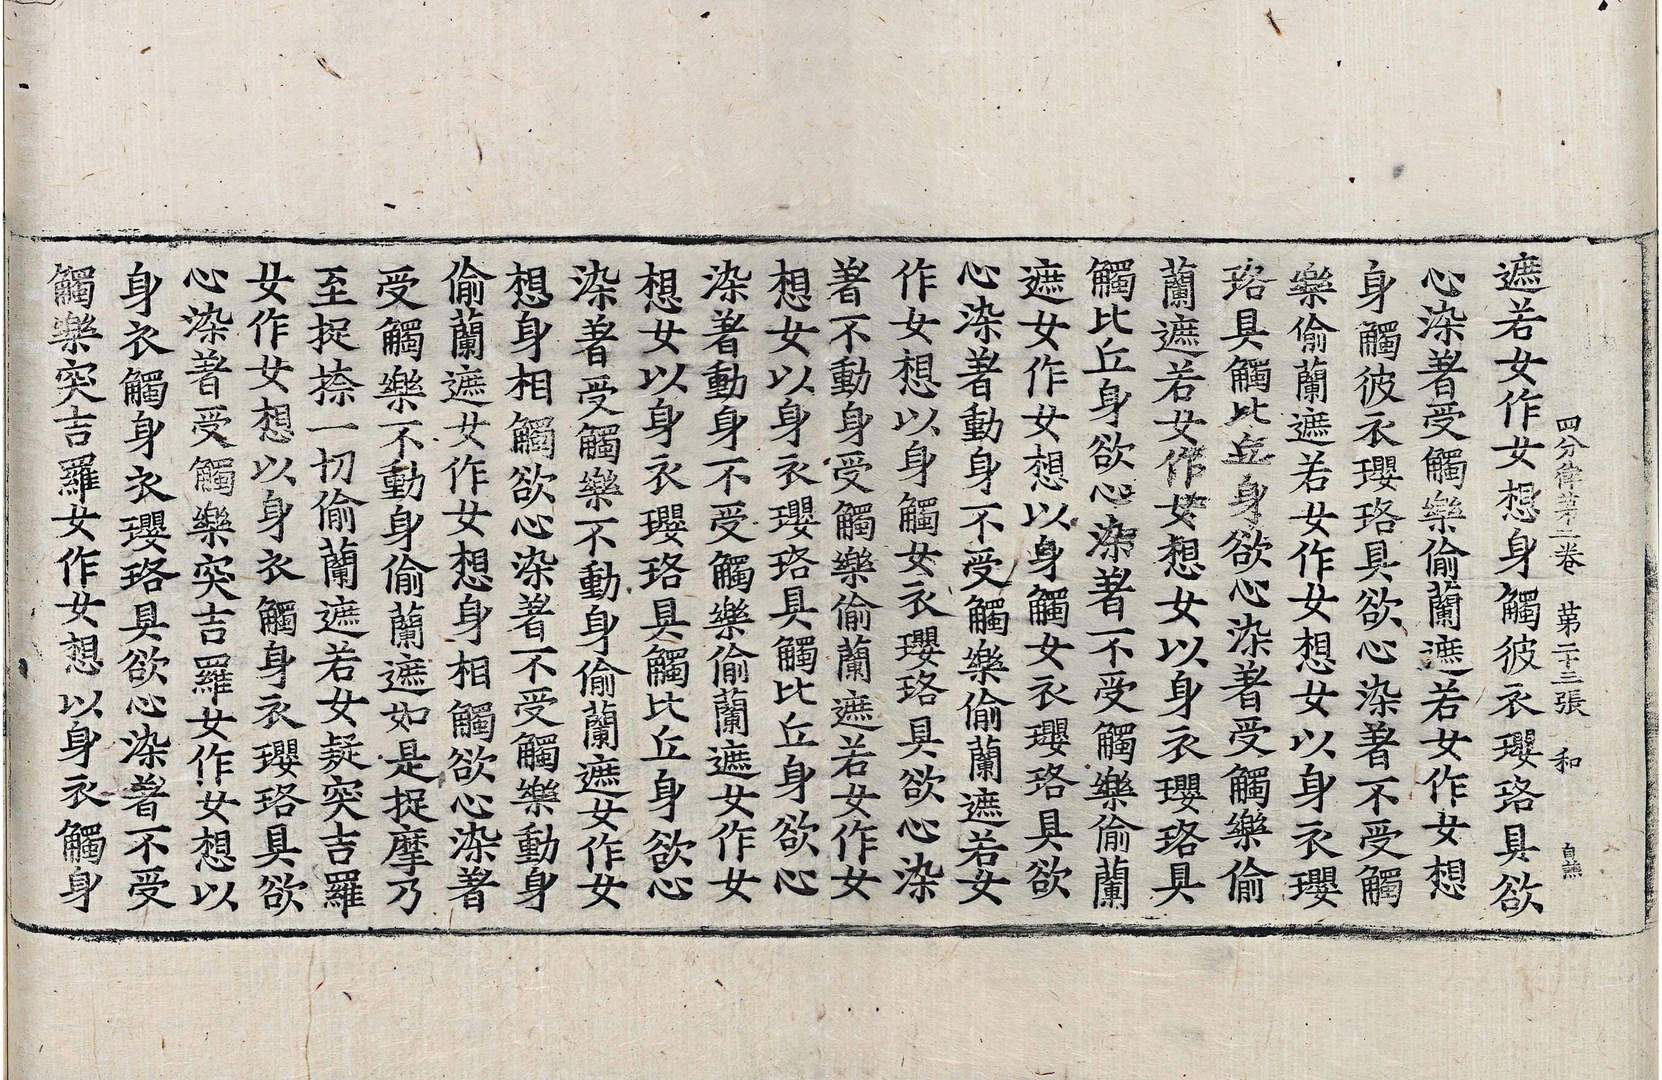 四分律苐二卷 苐二十三張 和
遮若女作女想身觸彼衣瓔珞具欲
心染著受觸樂偷蘭遮若女作女想
身觸彼衣瓔珞具欲心染著不受觸
樂偷蘭遮若女作女想女以身衣瓔
珞具觸比丘身欲心染著受觸樂偷
蘭遮若女作女想女以身衣瓔珞具
觸比丘身欲心染著不受觸樂偷蘭
遮女作女想以身觸女衣瓔珞具欲
心染著動身不受觸樂偷蘭遮若女
作女想以身觸女衣瓔珞具欲心染
著不動身受觸樂偷蘭遮若女作女
想女以身衣瓔珞具觸比丘身欲心
染著動身不受觸樂偷蘭遮女作女
想女以身衣瓔珞具觸比丘身欲心
染著受觸樂不動身偷蘭遮女作女
想身相觸欲心染著不受觸樂動身
偷蘭遮女作女想身相觸欲心染著
受觸樂不動身偷蘭遮如是捉摩乃
至捉捺一切偷蘭遮若女疑突吉羅
女作女想以身衣觸身衣瓔珞具欲
心染著受觸樂突吉羅女作女想以
身衣觸身衣瓔珞具欲心染著不受
觸樂突吉羅女作女想以身衣觸身